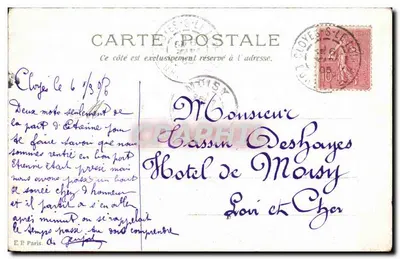 CLOYES-S-LE-L
CARTE POSTALE
Ce côté est exclusivement réservé à l'adresse.
MOISY
Cloyes le 6 1/3 06
Deux mots seulement de
la part d'Etienne pour
te faire savoir que nous
sommes rentré en bon port
Etienne était pressé mais
nous avons passé un bout
de soirée chez d'honneur
et il partit a s'en aller
après minuit on se rappelait
le temps passé, tu dois comprendre
Monsieur
Cassin Deshayes
Hotel de Moisy
Loir et Cher
E.P. Paris